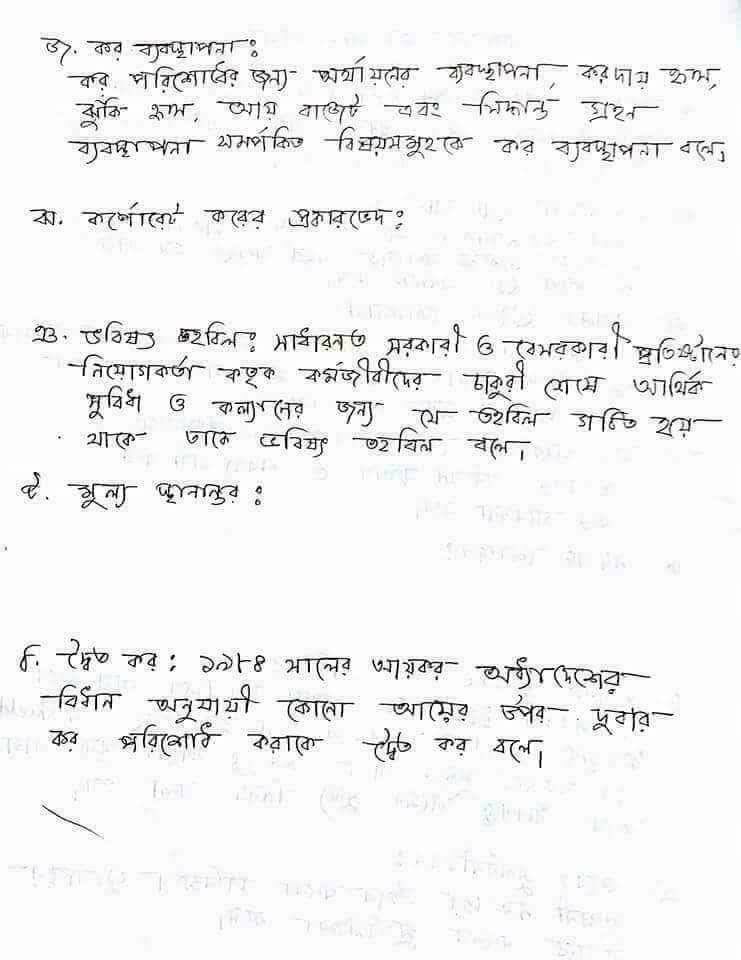 জ. কর ব্যবস্থাপনা:
কর পরিশোধের জন্য অর্থায়নের ব্যবস্থাপনা, করদায় হ্রাস,
ঝুঁকি হ্রাস, আয় বাজেট এবং সিদ্ধান্ত গ্রহন
ব্যবস্থাপনা সম্পর্কিত বিষয়সমূহকে কর ব্যবস্থাপনা বলে।
ঝ. কর্পোরেট করের প্রকারভেদ:
ঞ. ভবিষ্যৎ তহবিল: সাধারনত সরকারী ও বেসরকারী প্রতিষ্ঠানের
নিয়োগকর্তা কতৃক কর্মজীবীদের চাকুরী শেষে আর্থিক
সুবিধা ও কল্যানের জন্য যে তহবিল গঠিত হয়ে
থাকে তাকে ভবিষ্যৎ তহবিল বলে।
ট. মূল্য স্থানান্তর:
দ্বৈত কর: ১৯৮৪ সালের আয়কর অধ্যাদেশের
বিধান অনুযায়ী কোনো আয়ের উপর দুবার
কর পরিশোধ করাকে দ্বৈত কর বলে।